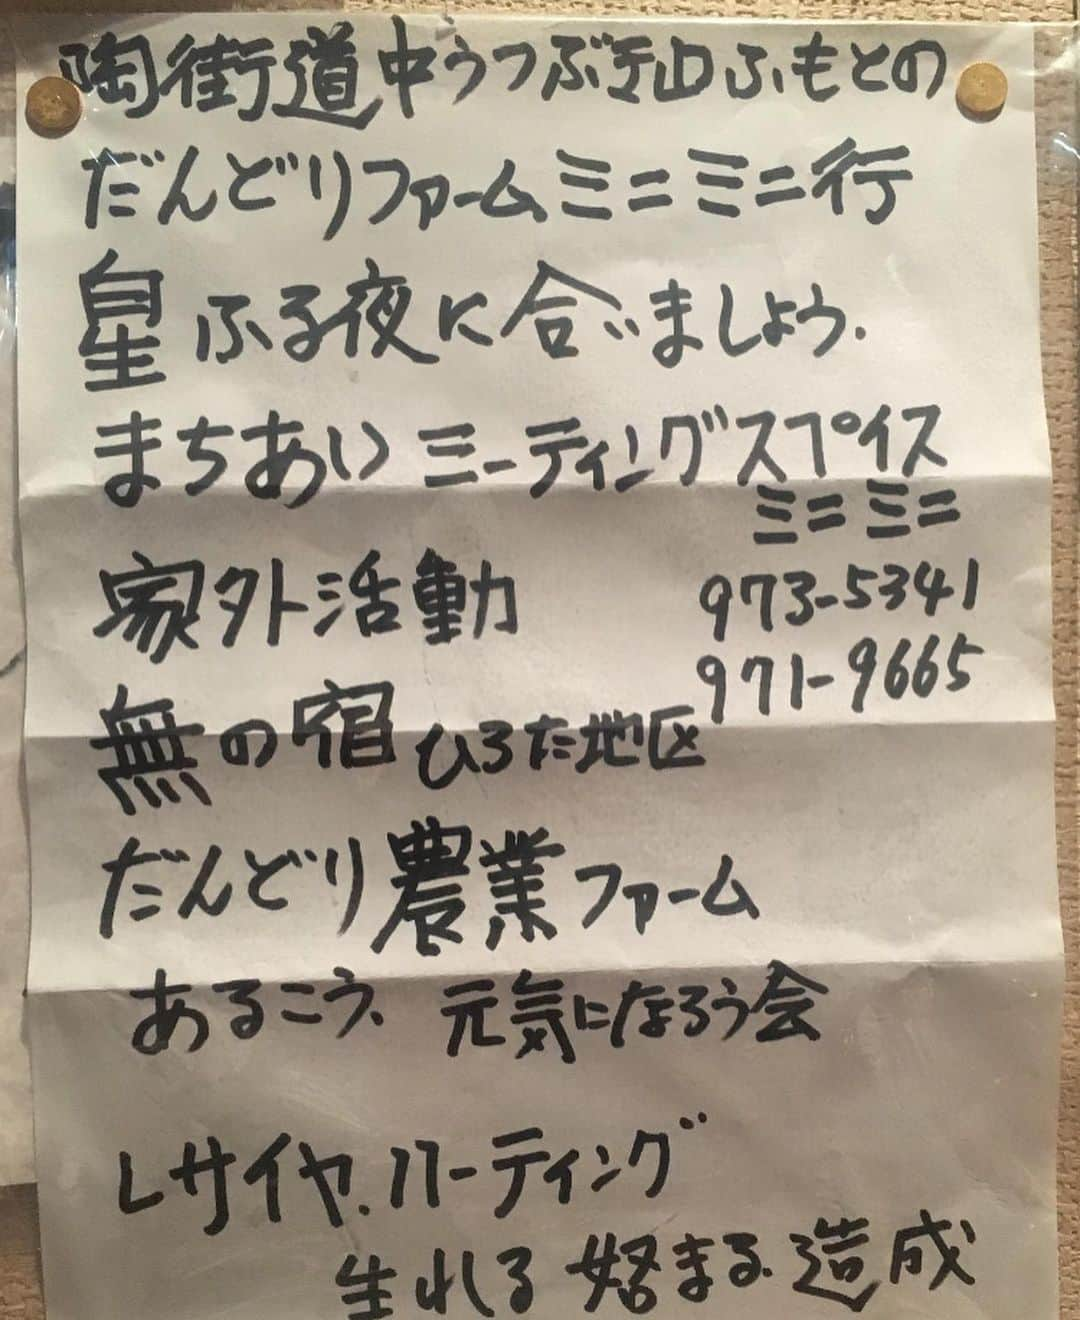 陶街道中うつぶな山ふもとの
だんどりファームミニミニ行
星ふる夜に合いましょう.
まちあいミーティングスペイス
ミニミニ
家外活動
973-5341
971-9665
無の宿ひろた地区
だんどり農業ファーム
あるこう、元気になろう会
レサイヤ.ハーティング
生れる始まる造成